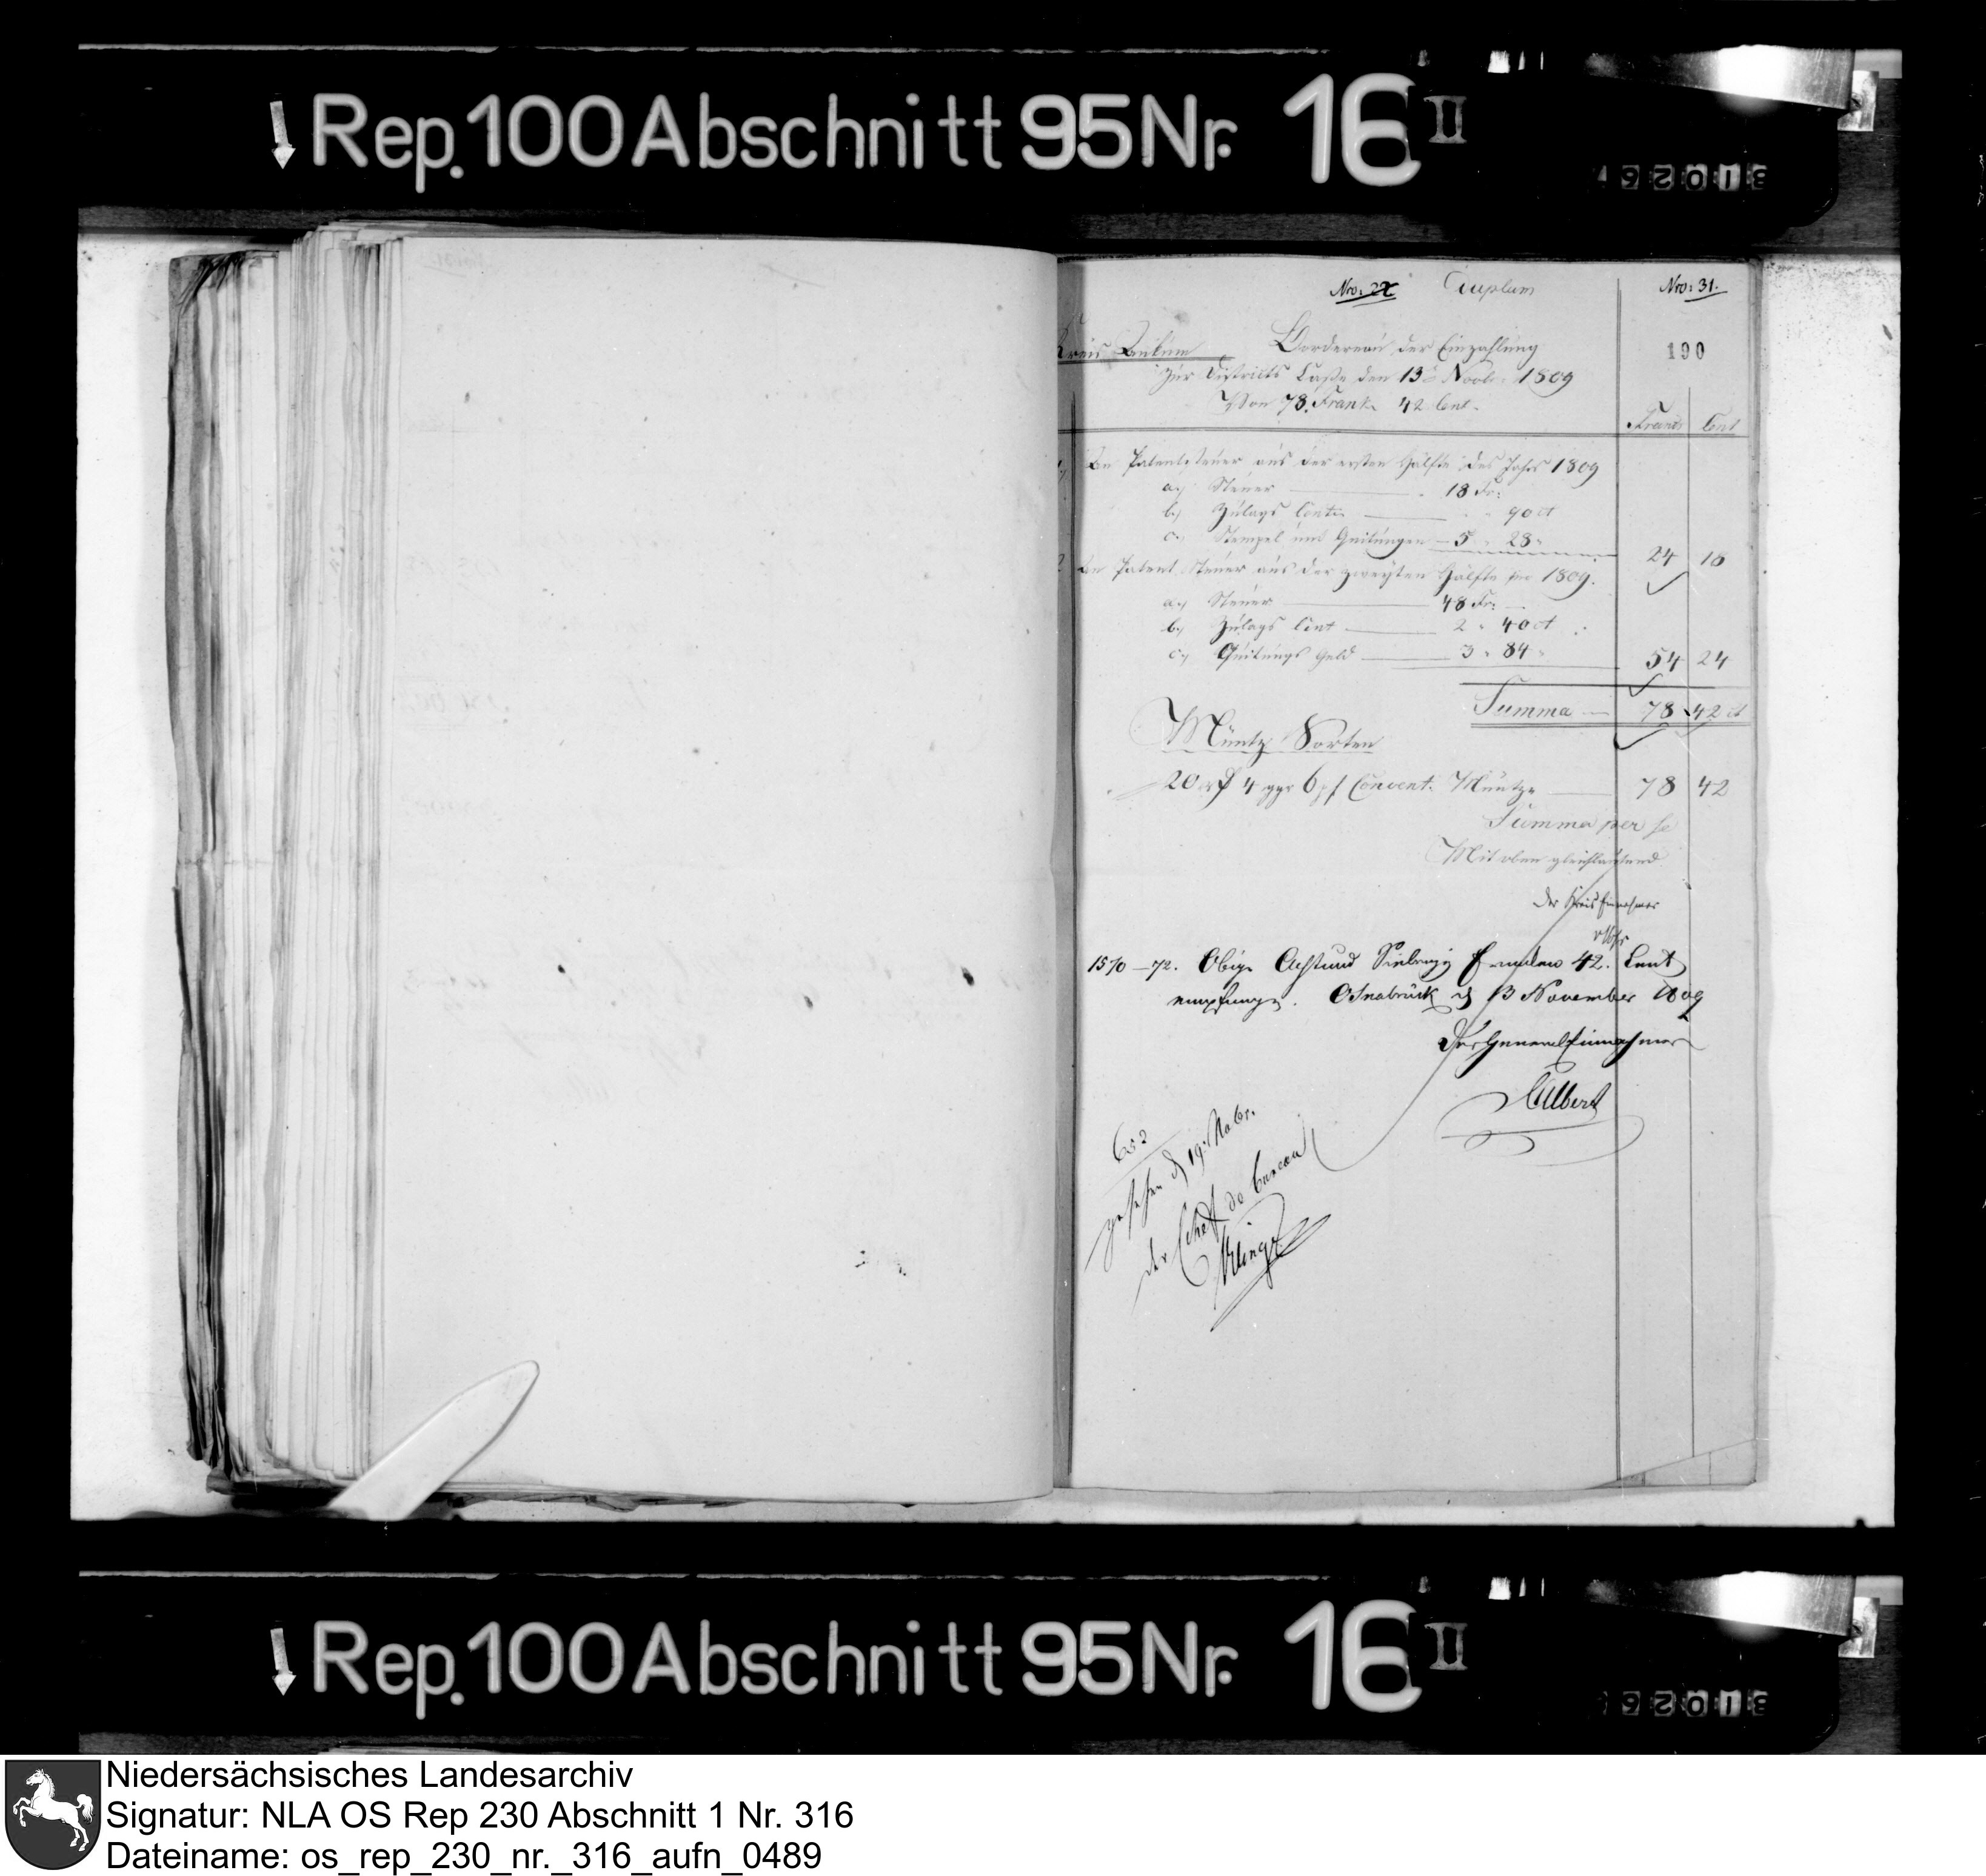 Rep. 100 Abschnitt 95 Nr. 16 II
Nro: 31.
Duplum
190
Kreis Ankum
Bordereau der Einzahlung
zur Districts Casse den 13t Novbr. 1809
Von 78. Frank. 42 Cent.
Franks Cent
An Patentsteuer aus der ersten Hälfte des Jahrs 1809
a.) Steuer 18 Fr:
b.) Zulags Cents 90 ct
c.) Stempel und Quitungen 5 " 28 "
24 18
An Patent Steuer aus der zweyten Hälfte pro 1809.
a.) Steuer 48 Fr:
b.) Zulags Cent 2 " 40 ct
c.) Quitungs Geld 3 " 84 "
54 24
Summa 78 42 ct
Müntz Sorten
20 rt 4 ggr 6 pf Convent. Müntze 78 42
Summa per se
Mit oben gleichlautend
Der Kreis Einnehmer
1570 – 72. Obige Acht und Siebenzig Franken 42. Cent
empfangen. Osnabrück d 13 November 1809
Der General Einnehmer
Gilbert
652
gesehen d 19t Nobr.
der Chef de bureau
Rep. 100 Abschnitt 95 Nr. 16 II
Niedersächsisches Landesarchiv
Signatur: NLA OS Rep 230 Abschnitt 1 Nr. 316
Dateiname: os_rep_230_nr._316_aufn_0489